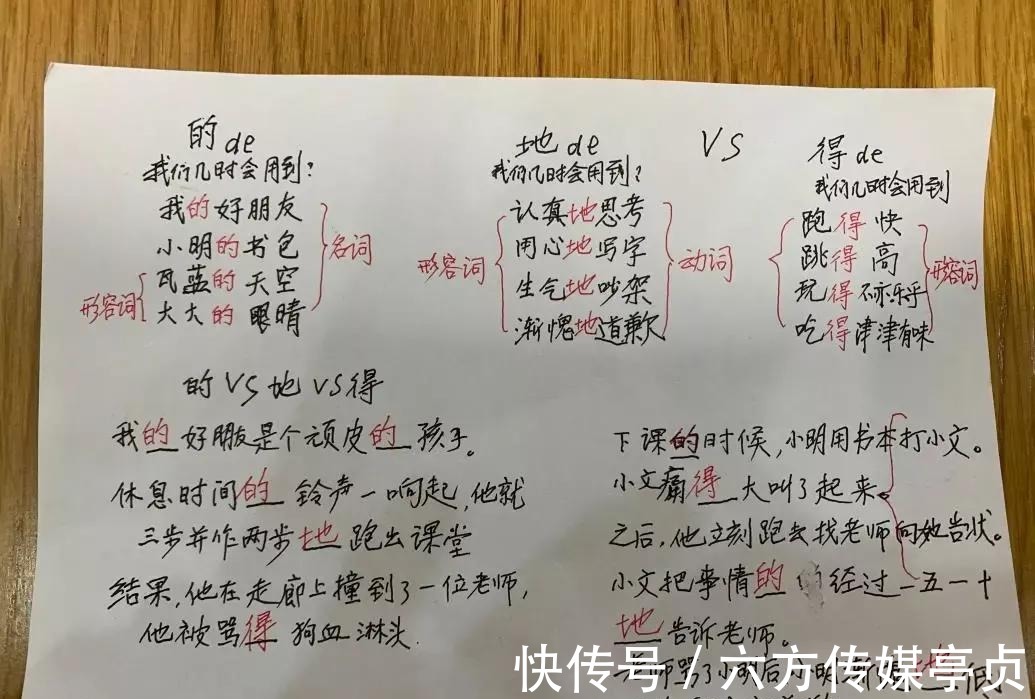 的 de
我们几时会用到?
我的好朋友
小明的书包
瓦蓝的天空
大大的眼睛
名词
形容词
地 de
我们几时会用到?
认真地思考
用心地写字
生气地吵架
渐愧地道歉
形容词
动词
VS
得 de
我们几时会用到
跑得快
跳得高
玩得不亦乐乎
吃得津津有味
形容词
的 VS 地 VS 得
我的好朋友是个顽皮的孩子。
休息时间的铃声一响起,他就
三步并作两步地跑出课堂
结果,他在走廊上撞到了一位老师,
他被骂得狗血淋头.
下课的时候,小明用书本打小文。
小文痛得大叫了起来。
之后,他立刻跑去找老师向她告状。
小文把事情的经过一五一十
地告诉老师。
老师骂了小明后,小明
快传号/六方传媒亭贞